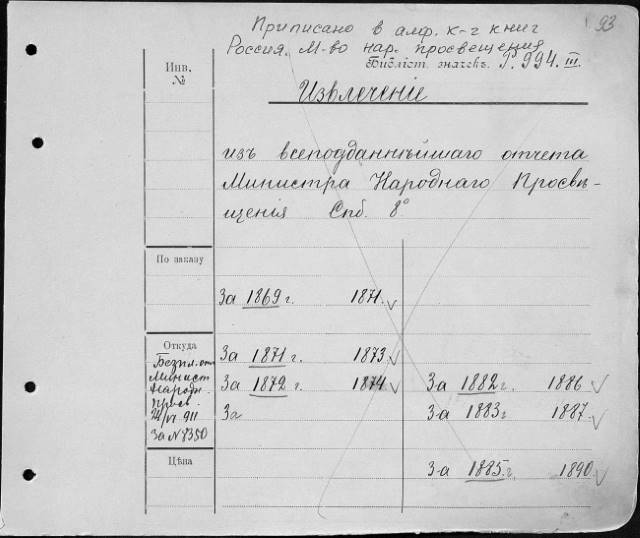 Приписано в алф. к-г книг
93
Россия. М-во нар. просвещения
Библіот. значекъ. P. 994. III.
Инв.
№
Извлеченіе
изъ всеподданнѣйшаго отчета
Министра Народнаго Просвѣ-
щенія Спб. 8°
По заказу
За 1869 г. 1871.
Откуда
Безпл. отъ
Минист
Народн.
Просв.
911
За № 8350
За 1871 г. 1873
За 1872 г. 1874
За
За 1882 г. 1886
З-а 1883 г 1887
Цѣна
З-а 1885 г. 1890